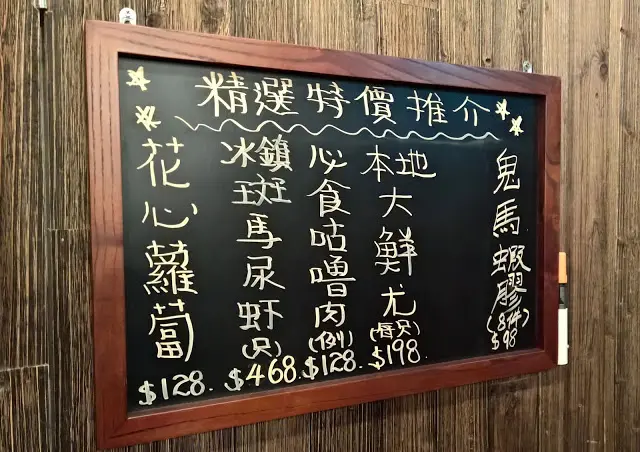 精選特價推介
鬼馬蝦膠(8件)$98
本地大鮮尤(每只)$198.
必食咕嚕肉(例)$128.
冰鎮斑馬尿虾(只)$468.
花心蘿蔔$128.